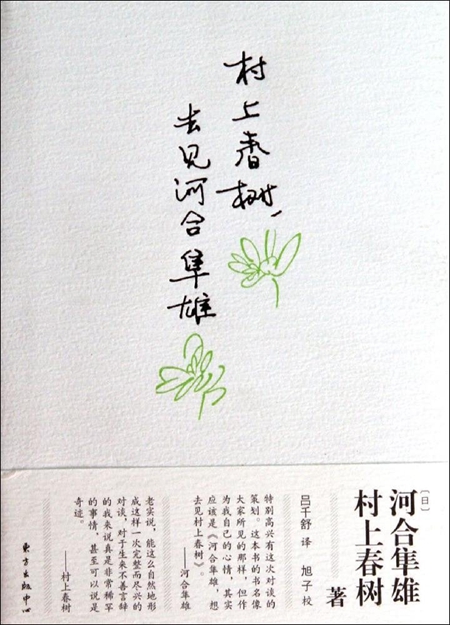 村上春树,
去见河合隼雄
[日]
河合隼雄
村上春树
著
吕千舒 译 旭子 校
特别高兴有这次对谈的
策划。这本书的书名像
大家所见的那样,但作
为我自己的心情,其实
应该是《河合隼雄,想
去见村上春树》。
——河合隼雄
老实说,能这么自然地形
成这样一次完整而尽兴的
对谈,对于生来不善言辞
的我来说真是非常稀罕
的事情,甚至可以说是
奇迹。
——村上春树
东方出版中心